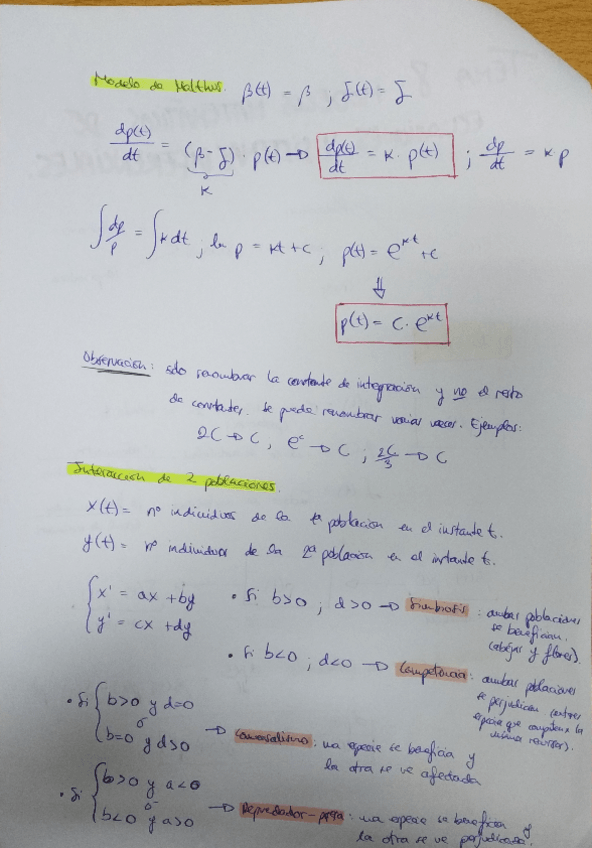 Modelo de Malthus. β(t) = β ; ζ(t) = ζ
dp(t)/dt = (β-ζ) · p(t) → dp(t)/dt = K · p(t) ; dp/dt = K p
K
∫ dp/p = ∫ K dt ; ln p = Kt + C ; p(t) = e^{Kt} + C
⇓
p(t) = C · e^{Kt}
Observación: sólo renombrar la constante de integración y no el resto
de constantes. Se puede renombrar varias veces. Ejemplos:
2C → C, e^c → C ; 2C/3 → C
Interacción de 2 poblaciones.
X(t) = nº individuos de la 1ª población en el instante t.
y(t) = nº individuos de la 2ª población en el instante t.
{ x' = ax + by
{ y' = cx + dy
• Si b>0 ; d>0 → Simbiosis : ambas poblaciones
se benefician.
(abejas y flores).
• Si b<0 ; d<0 → Competencia : ambas poblaciones
se perjudican (entre
especie que competen x la
misma recursos).
• Si { b>0 y d=0
ó
b=0 y d>0 → Comensalismo : una especie se beneficia y
la otra se ve afectada
• Si { b>0 y a<0
ó
b<0 y a>0 → Depredador-presa : una especie se beneficia y
la otra se ve perjudicada.